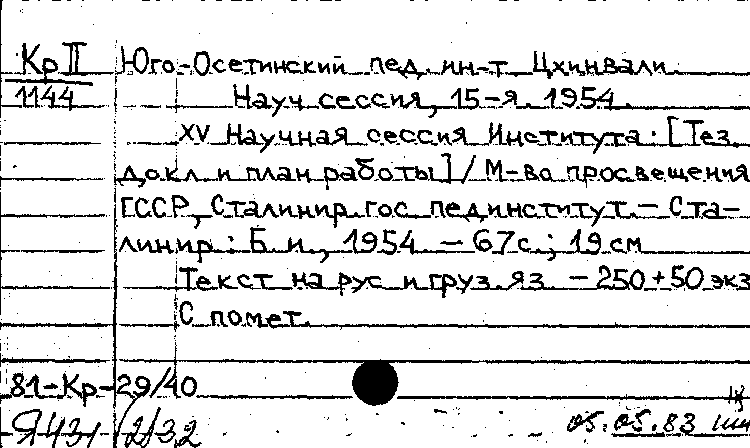 Кр II Юго-Осетинский пед. ин-т Цхинвали.
1144 Науч сессия, 15-я. 1954.
XV Научная сессия Института: [Тез.
докл и план работы] / М-во просвещения
ГССР, Сталинир. гос. пединститут. – Ста-
линир: Б. и., 1954. – 67 с.; 19 см
Текст на рус и груз. яз. – 250 + 50 экз
С помет.
81-Кр-29/40
Я431 (2)32
05.05.83